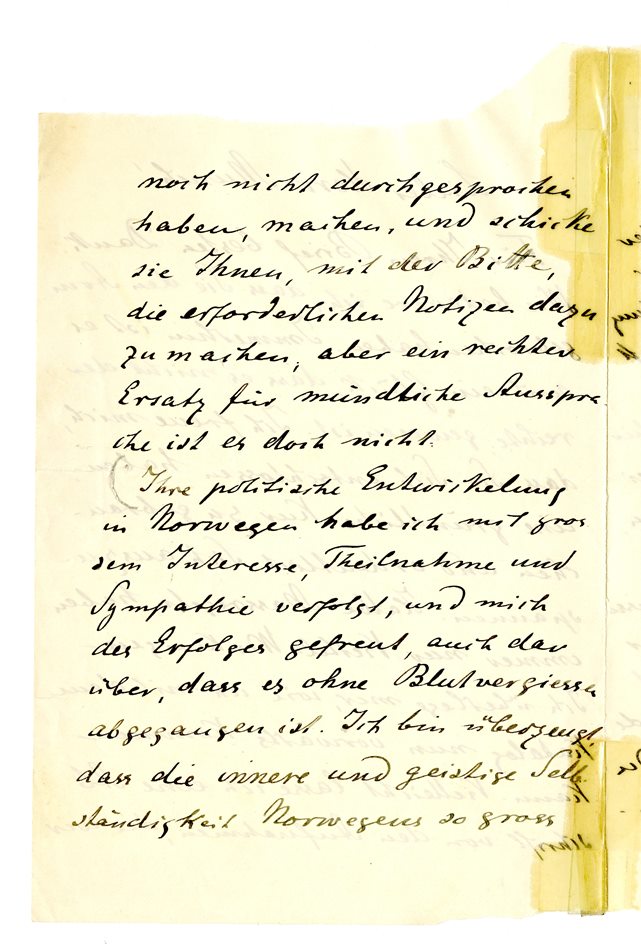 noch nicht durchgesprochen
haben, machen, und schicke
sie Ihnen, mit der Bitte,
die erforderlichen Notizen dazu
zu machen, aber ein rechter
Ersatz für mündliche Ausspra
che ist es doch nicht.
(Ihre politische Entwickelung
in Norwegen habe ich mit gros
sem Interesse, Theilnahme und
Sympathie verfolgt, und mich
des Erfolges gefreut, auch dar
über, dass es ohne Blutvergiessen
abgegangen ist. Ich bin überzeugt
dass die innere und geistige Selb
ständigkeit Norwegens so gross